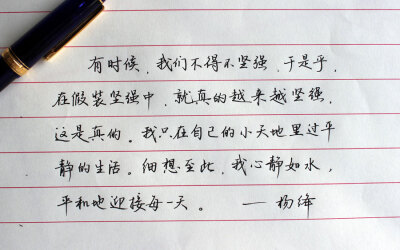 有时候，我们不得不坚强，于是乎，
在假装坚强中，就真的越来越坚强，
这是真的。我只在自己的小天地里过平
静的生活。细想至此，我心静如水，
平和地迎接每一天。 ——杨绛